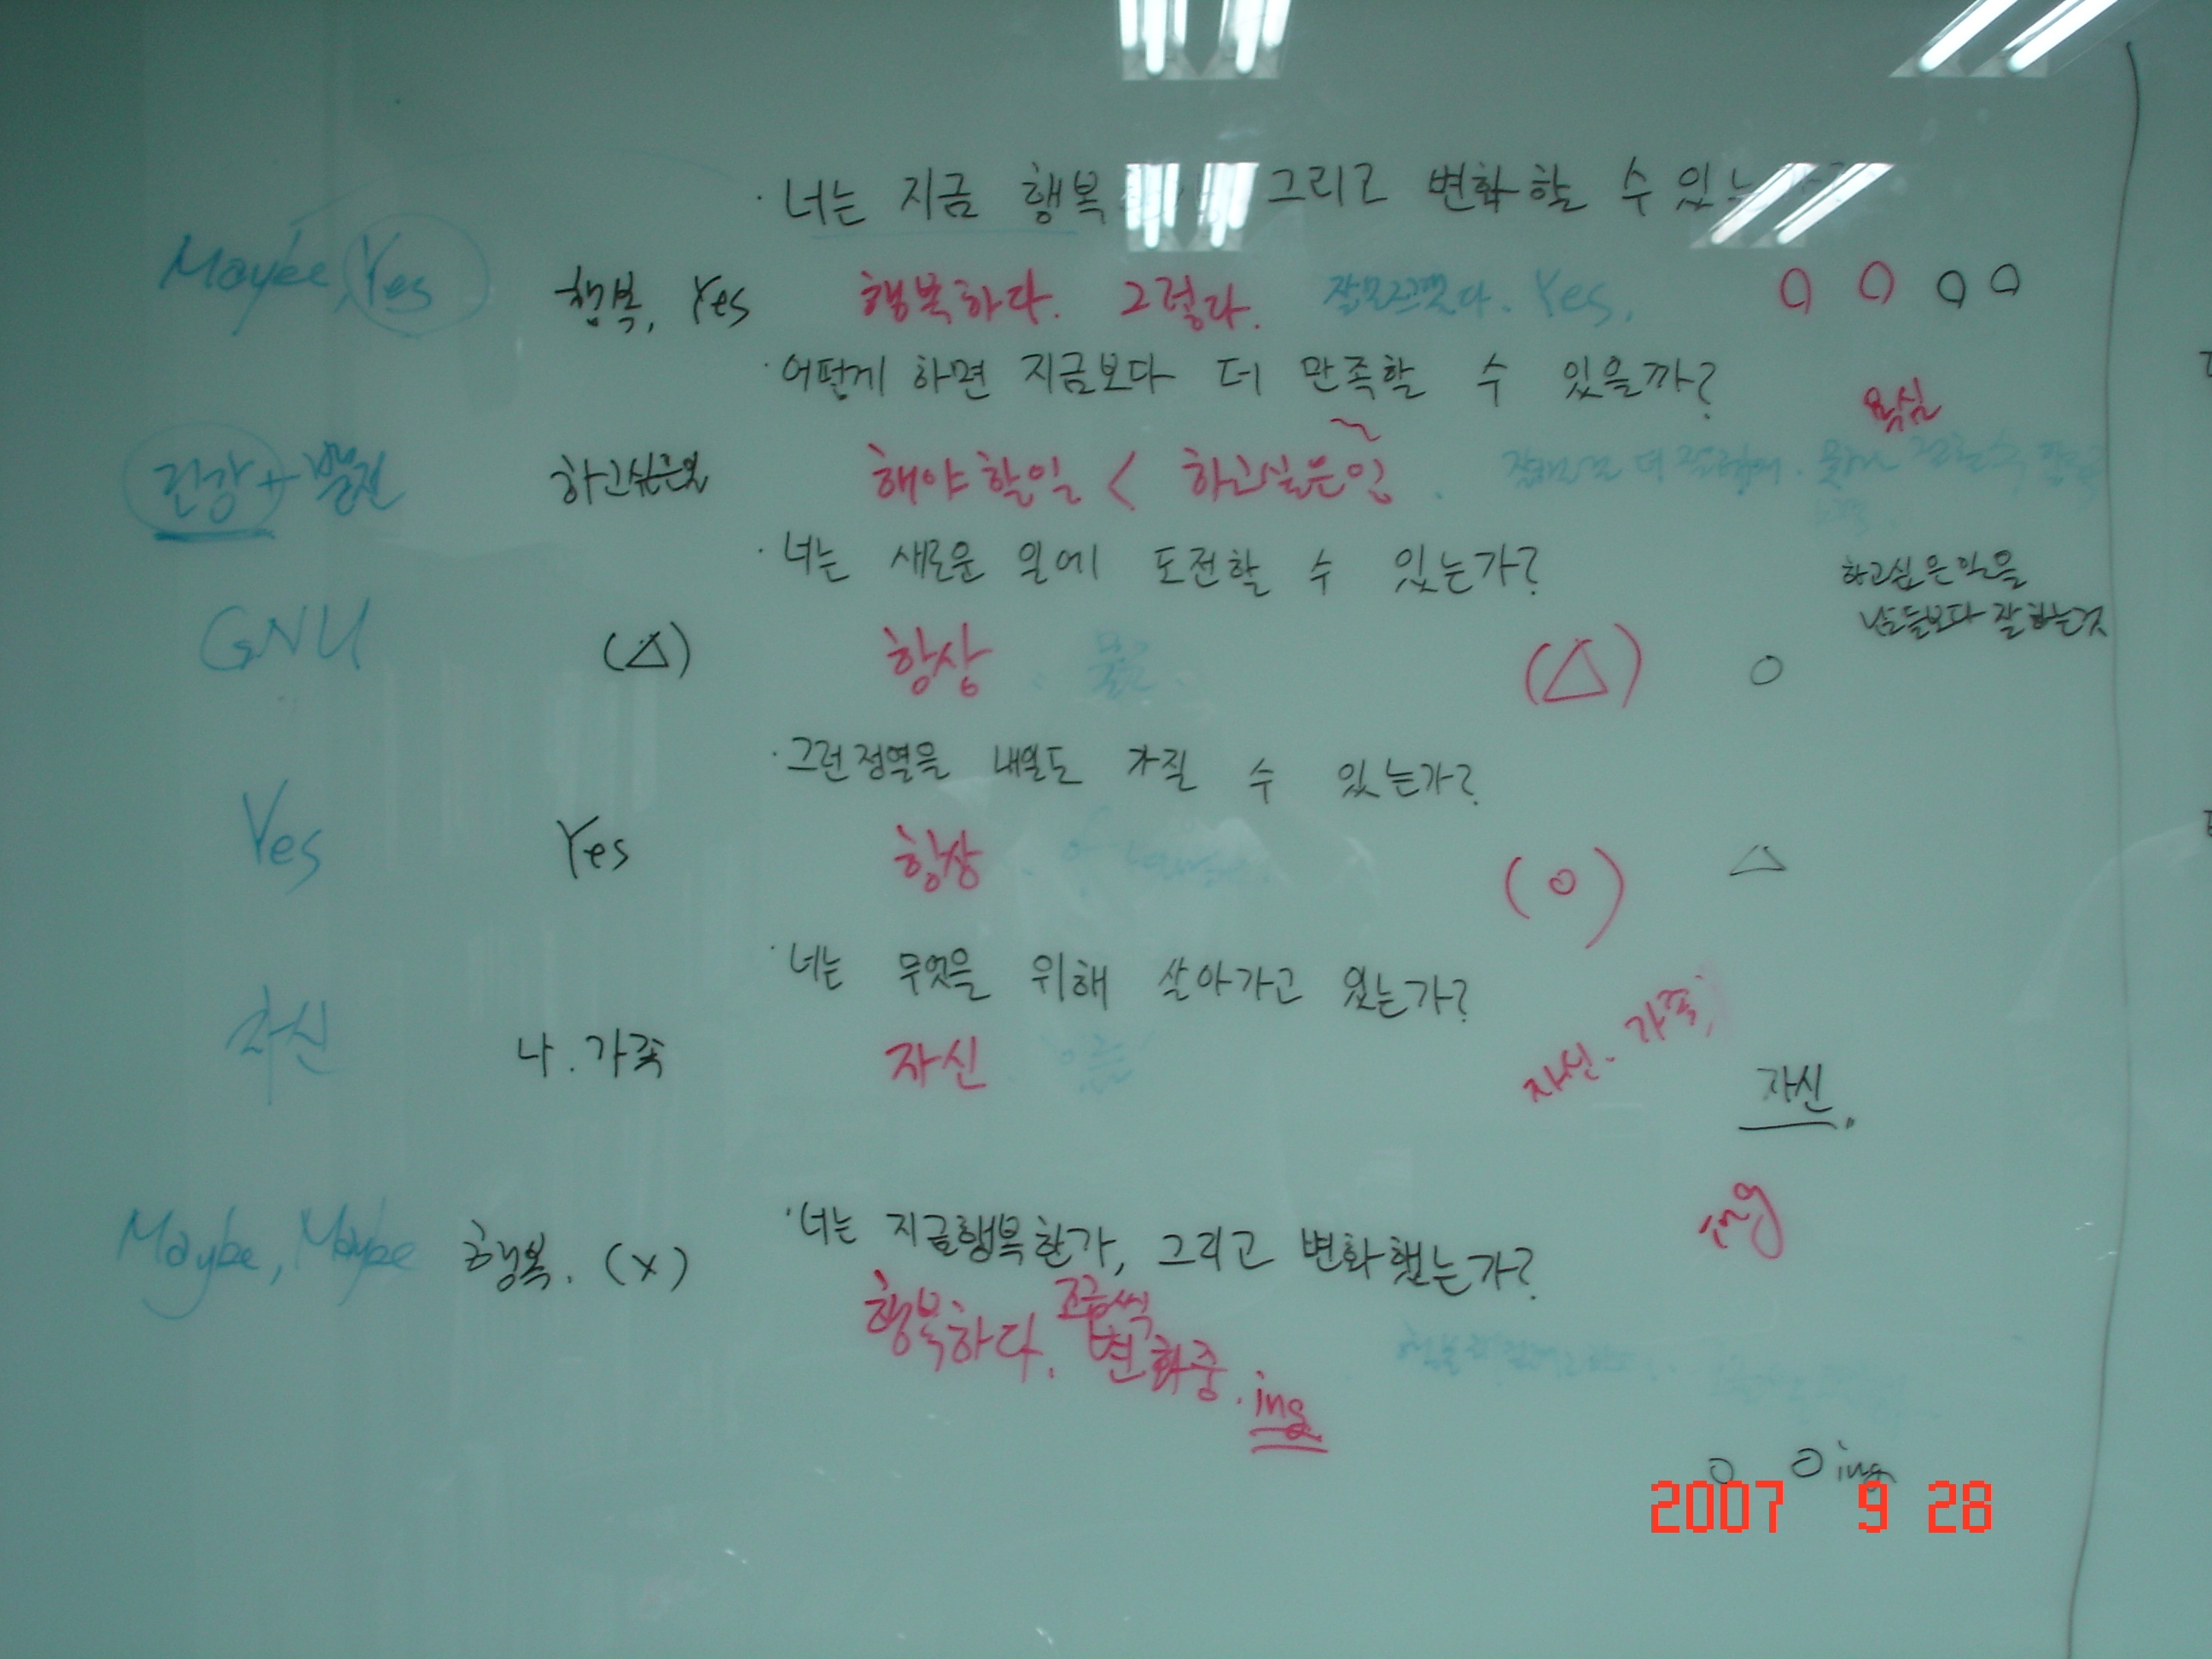 · 너는 지금 행복 그리고 변화할 수 있는
Maybe, Yes 행복, Yes 행복하다. 그렇다. 잘모르겠다. Yes. O O O O
· 어떻게 하면 지금보다 더 만족할 수 있을까?
욕심
건강 + 발전 하고싶은일 해야할일 < 하고싶은일
· 너는 새로운 일에 도전할 수 있는가?
하고싶은일을
남들보다 잘하는것
GNU (△) 항상 (△) O
· 그런정열을 내일도 가질 수 있는가?
Yes Yes 항상 (O) △
· 너는 무엇을 위해 살아가고 있는가?
자신 나. 가족 자신 자신. 가족 자신.
ing
Maybe, Maybe 행복. (X) · 너는 지금행복한가, 그리고 변화했는가?
행복하다. 조금씩 변화중. ing
O O ing
2007 9 28